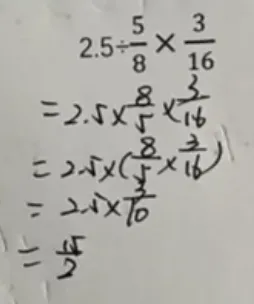 2.5÷5/8×3/16
=2.5×8/5×3/16
=2.5×(8/5×3/16)
=2.5×3/10
=15/2